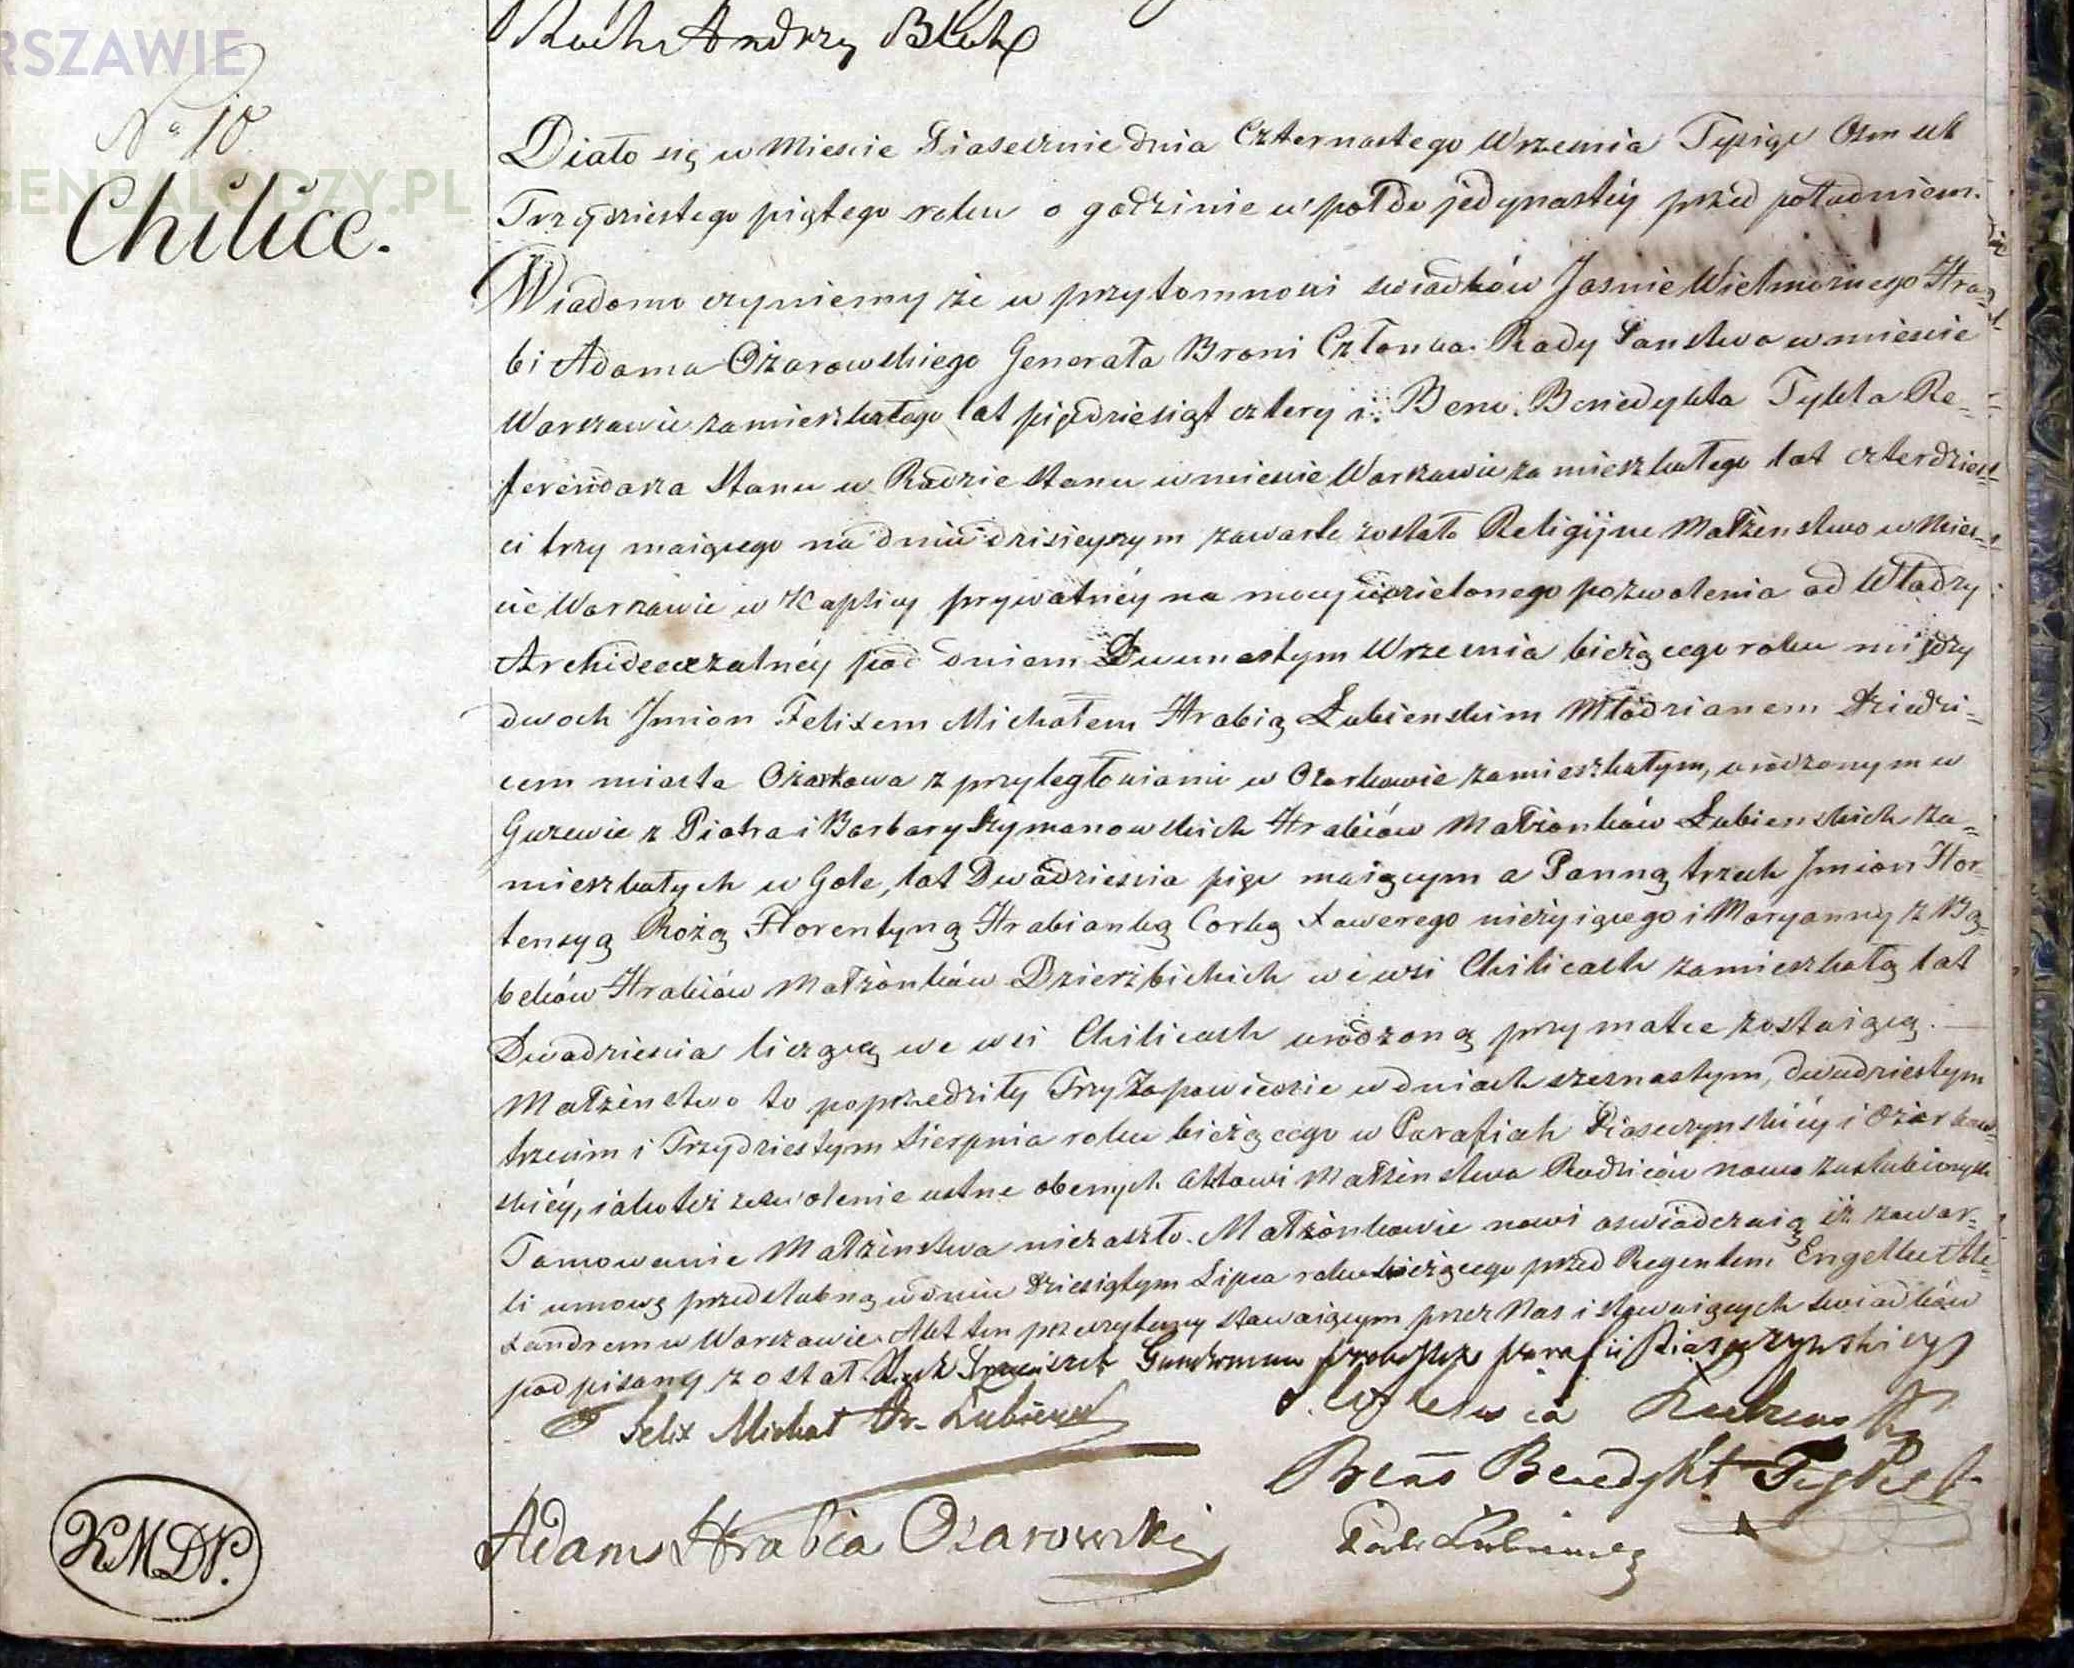 Roch Andrzy Bluh
RSZAWIE
GENEALODZY.PL
No 10.
Chilice.
Diało się w Mieście Piasecznie dnia Czternastego Wrzesnia Tysiąc Osmset
Trzydziestego piątego roku o godzinie w pół do jedynastéy przed południem.
Wiadomo czyniemy że w przytomnosci swiadków Jasnie Wielmożnego Hra=
bi Adama Ożarowskiego Generała Broni Członka Rady Panstwa w miescie
Warszawie zamieszkałego lat pięćdziesiąt cztery i Beno Benedykta Tykla Re=
ferendarza Stanu w Radzie Stanu w miescie Warszawie zamieszkałego lat czterdzies=
ci trzy maiącego na dniu dzisieyszym zawarte zostało Religijne Małżenstwo w Mies=
cie Warszawie w Kaplicy prywatnéy na mocy udzielonego pozwolenia od Władzy
Archidecezalnéy pod dniem Dwunastym Wrzesnia bieżącego roku między
dwoch Jmion Felixem Michałem Hrabią Łubienskim Młodzianem Dziedzi=
cem miasta Ozorkowa z przyległosciami w Ozorkowie zamieszkałym, urodzonym w
Guzewie z Piotra i Barbary Szymanowskich Hrabiów Małżonków Łubienskich za=
mieszkałych w Gole, lat Dwadziescia pięc maiącym a Panną trzech Jmion Hor=
tensyą Rożą Florentyną Hrabianką Corką Xawerego nieżyiącego i Maryanny z Bą=
beków Hrabiów Małżonków Dzierzbickich w wsi Chilicach zamieszkałą lat
Dwadziescia liczącą we wsi Chilicach urodzoną przy matce zostaiącą.
Małżenstwo to poprzedziły Trzy Zapowiedzie w dniach szesnastym, dwudziestym
trzecim i Trzydziestym Sierpnia roku bieżącego w Parafiach Piaseczynskiéy i Ozorkow=
skiéy, iako też zezwolenie ustne obecnych Aktowi Małżenstwa Rodziców nowo zaslubionych
Tamowanie Małżenstwa niezaszło. Małżonkowie nowi oswiadczaią iż zawar=
li umowę przedslubną w dniu Dziesiątym Lipca roku bieżącego przed Regentem Engelke Ale=
xandrem w Warszawie. Akt ten przeczytany stawaiącym przez Nas i stawaiących swiadków
podpisany został. Franciszek proboszcz Parafii Piaseczynskiey
Felix Michał Hr. Łubieński
Beno Benedykt Tykel
Adam Hrabia Ożarowski
Piotr Łubieński
KMDN.